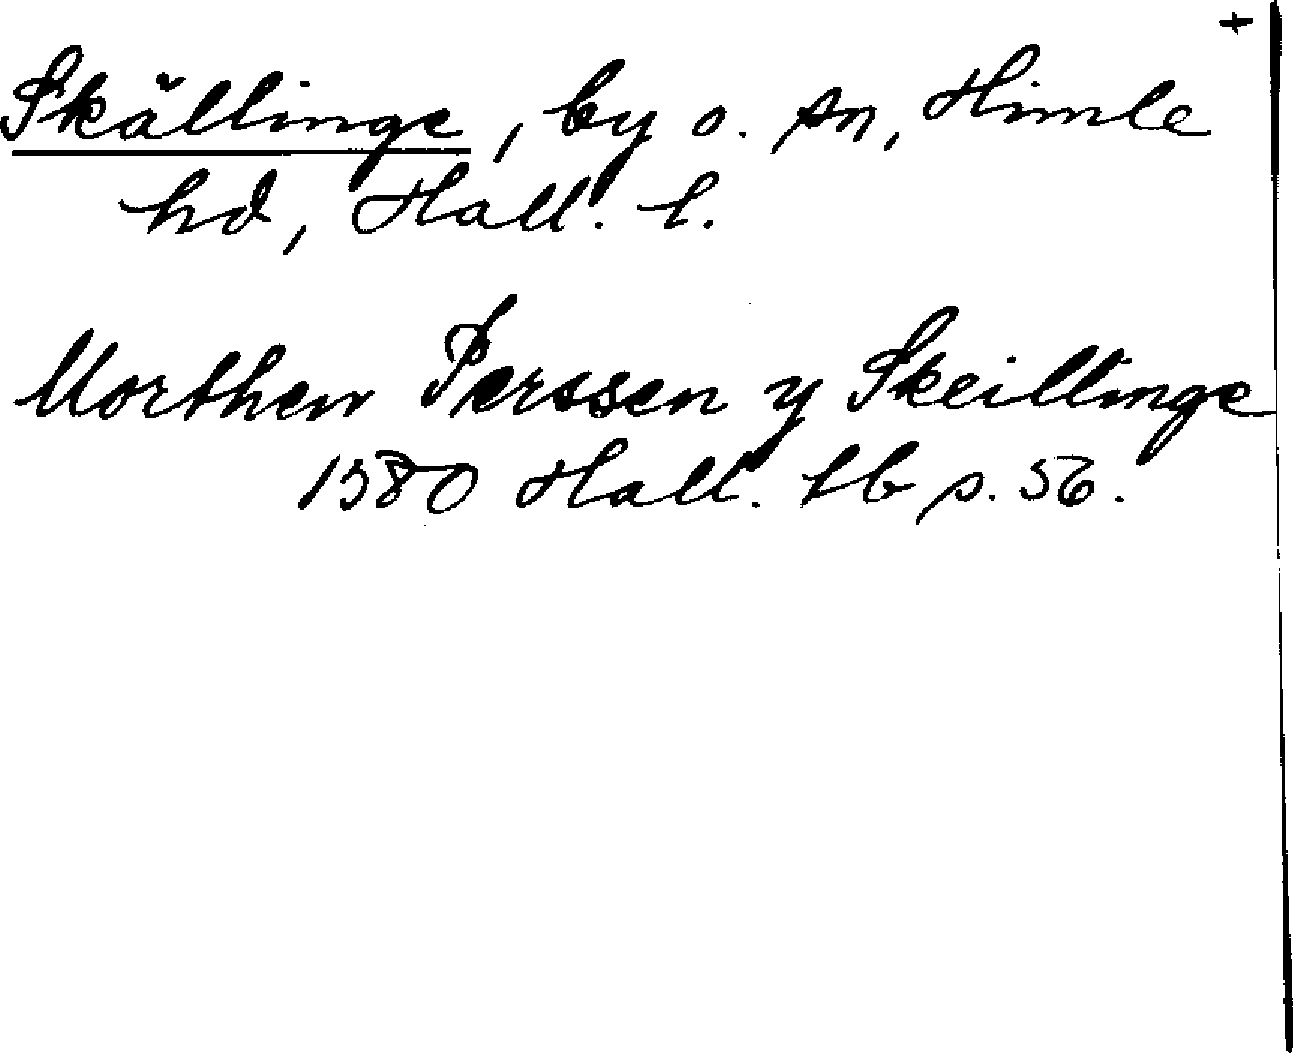 +
Skällinge, by o. sn, Himle
hd, Hall. l.
Morthen Perssen y Skeillinge
1580 Hall. lb p. 56.